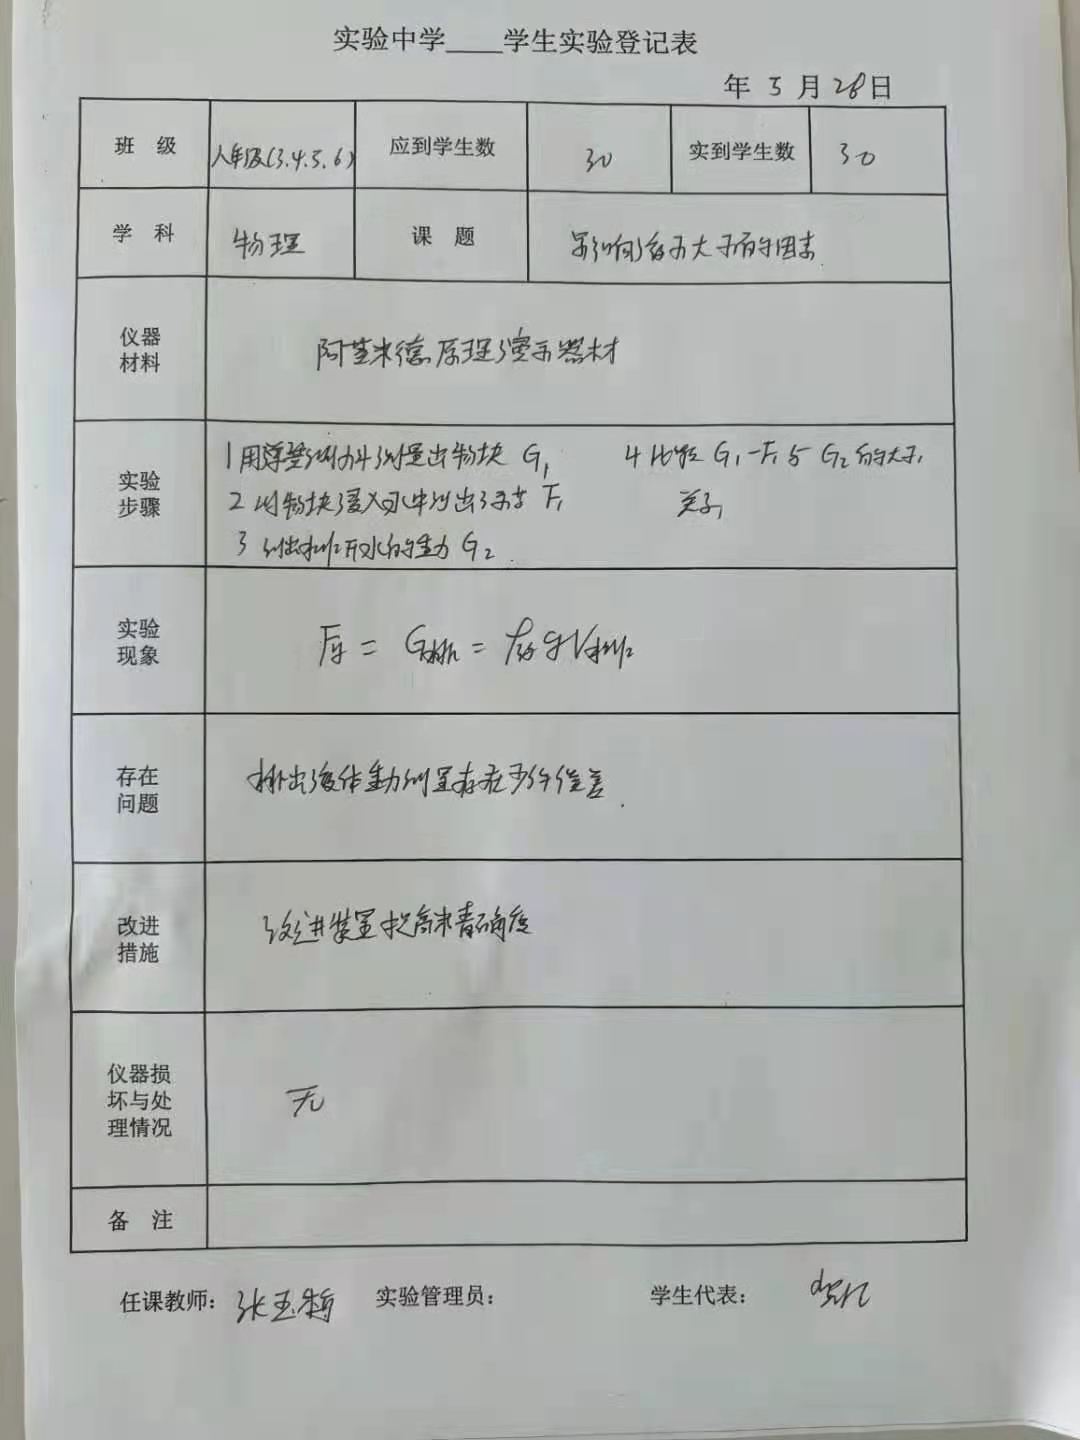 实验中学____学生实验登记表
年 5 月 28日
班 级 八年级(3.4.5.6) 应到学生数 30 实到学生数 30
学 科 物理 课 题 影响浮力大小的因素
仪器
材料
阿基米德原理演示器材
实验
步骤
1 用弹簧测力计测量出物块 G₁
2 将物块浸入水中测出示数 F₁
3 测出排开水的重力 G₂
4 比较 G₁-F₁与 G₂的大小
关系
实验
现象
F浮 = G排 = ρ液gV排
存在
问题
排出液体重力测量存在少许误差.
改进
措施
改进装置提高精确度
仪器损
坏与处
理情况
无
备 注
任课教师: 张玉梅 实验管理员: 学生代表: